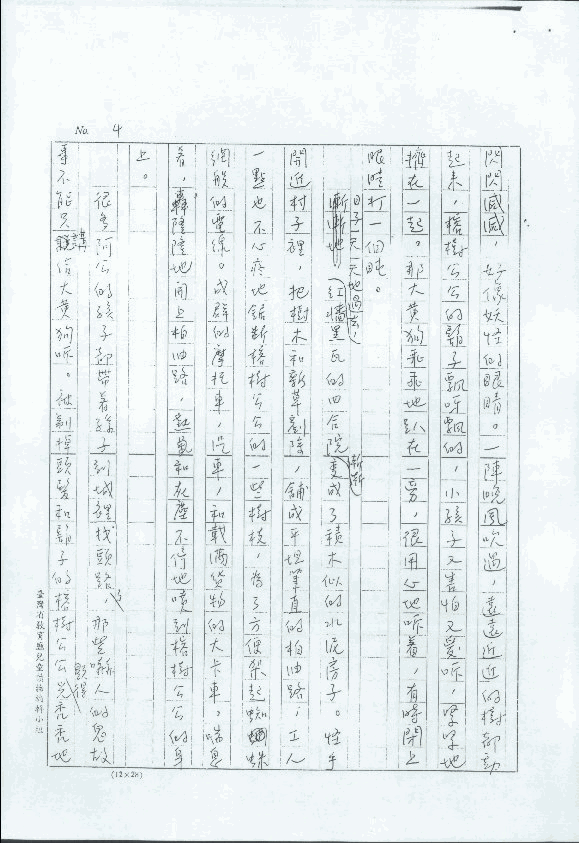 No. 4
閃閃滅滅，好像妖怪的眼睛。一陣晚風吹過，遠遠近近的樹都動
起來，榕樹公公的鬍子飄呀飄的，小孩子又害怕又愛聽，緊緊地
擠在一起。那大黃狗乖乖地趴在一旁，很用心地聽著，有時閉上
眼睛打一個盹。
日子一天天地過去，
漸漸地，紅牆黑瓦的四合院漸漸變成了積木似的水泥房子。怪手
開近村子裡，把樹木和野草剷除，舖成平坦筆直的柏油路，工人
一點也不心疼地鋸斷榕樹公公的一些樹枝，為了方便架起蜘蛛
網般的電線。成群的摩托車，汽車，和載滿貨物的大卡車，喘息
著，轟隆隆地開上柏油路，把
和灰塵不停地噴到榕樹公公的身
上。
很多阿公的孩子都帶著孫子到城裡找頭路了，那些嚇人的鬼故
事不能只講給大黃狗聽。被剃掉頭髮和鬍子的榕樹公公顯得光禿禿地
臺灣省教育廳兒童讀物編輯小組
(12×28)